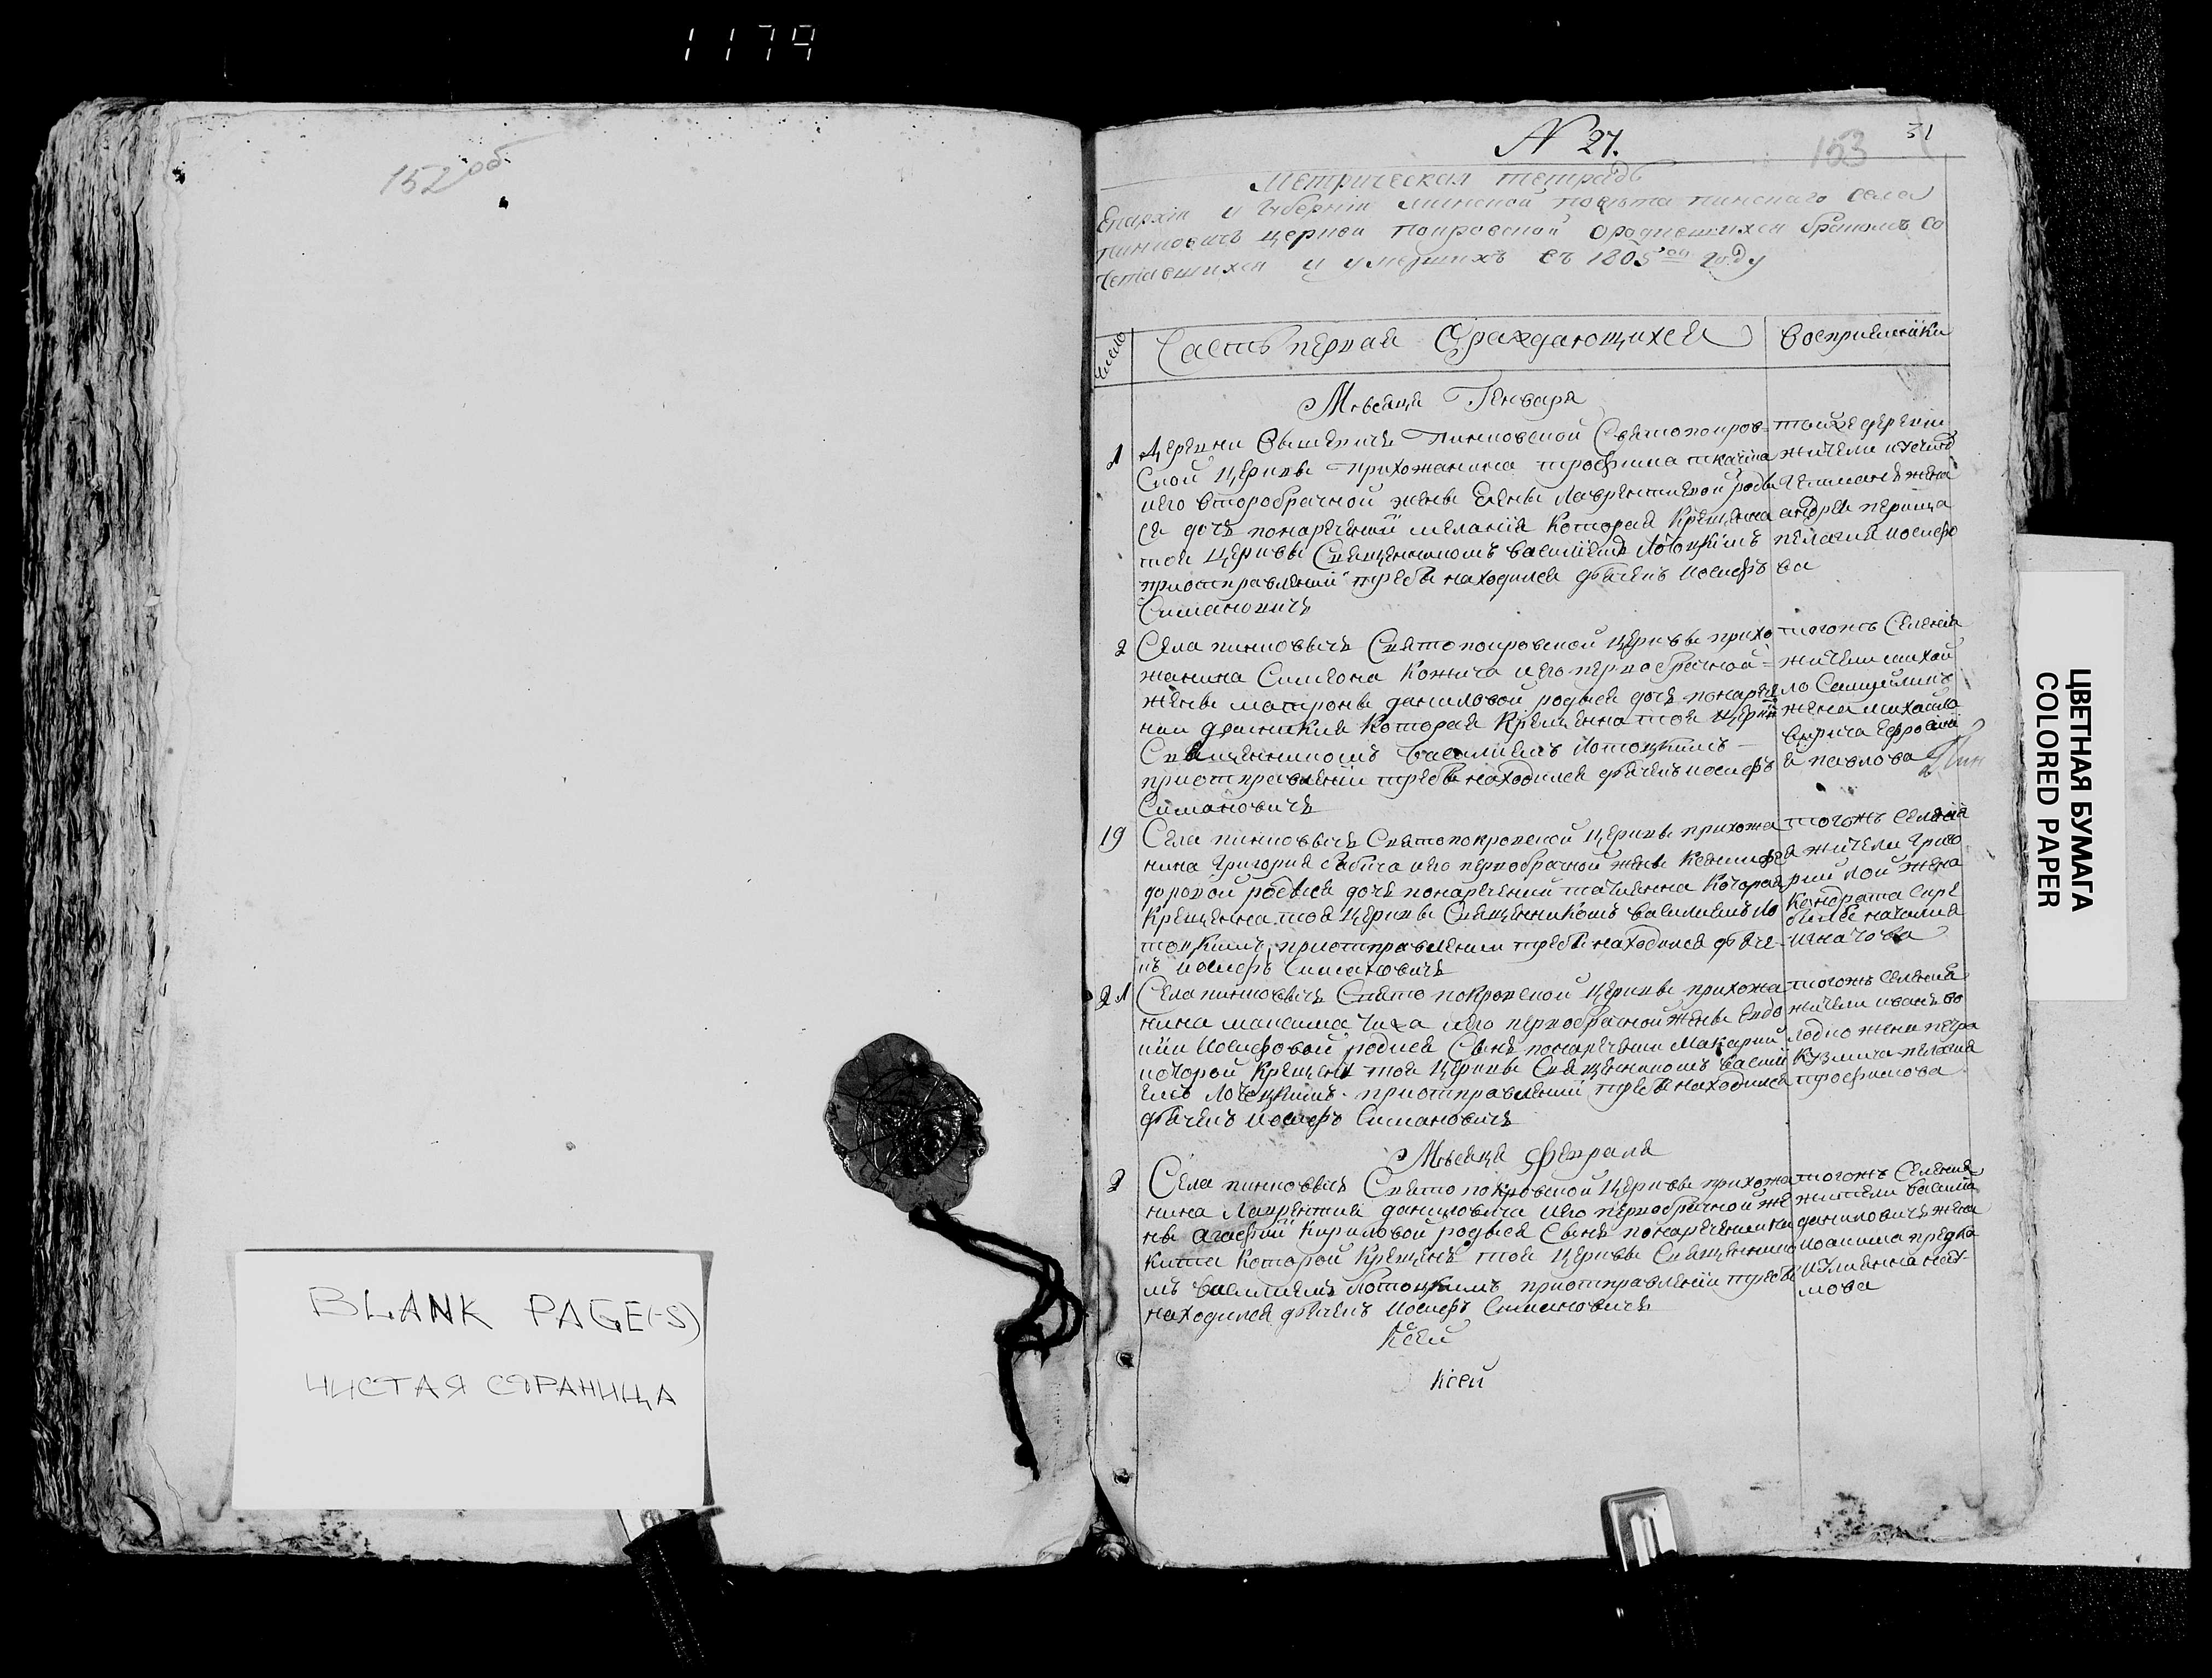 1179
152 об
BLANK PAGE(-S)
ЧИСТАЯ СТРАНИЦА
N 27.
153
31
Метрическая тетрадь
Епархіи и Губерніи Минской повѣта пинскаго села
пинковичъ церкви покровской ородившихся бракомъ со
четавшихся и умершихъ съ 1805 году
число
Часть первая Ораждающихся
Восприемники
Мѣсяца Генваря
1
Деревни Вышевичъ пинковской Святопокров=
ской церкви прихожанина трофима ткача
иего второбрачной жены Елены Лаврентиевой роди
ся дочь понаречений меланія которая крещенна
тоя церкви Священникомъ василиемъ Лотоцкимъ
приотправлений требы находился дьячекъ иосифъ
Симановичъ
тойже деревни
жители
жена
андрея
пелагия иосифо
ва
2
Села пинковичъ Святопокровской церкви прихо
жанина Симеона Кожича иего первобрачной=
жены матроны даниловой родися дочь понарече
нии которая крещенна тоя церкви
Священникомъ василиемъ Лотоцкимъ
приотправлении требы находился дьячекъ иосифъ
Симановичъ
тогожъ Селения
жители михай
ло
жена михаила
Ефросини
я павлова
19
Села пинковичъ Святопокровской церкви прихожа
нина Григория иего первобрачной жены Ксении фео
доровой родися дочь понаречений татиянна которая
крещенна тоя церкви Священникомъ василиемъ Ло
тоцкимъ приотправлении требы находился дьяче
къ иосифъ Симановичъ
тогожъ Селения
жители Григо
рий жена
Кондрата
наталия
игнатова
21
Села пинковичъ Свято покровской церкви прихожа
нина максима Чижа иего первобрачной жены Евдо
кии иосифовой родися Сынъ понаречении Макарий
которой крещенъ тоя церкви Священникомъ васили
емъ Лотоцкимъ приотправлений требы находился
дьячекъ иосифъ Симановичъ
тогожъ Селения
жители иванъ во
лодко жена петра
Кузмича пелагия
трофимова
Мѣсяца февраля
2
Села пинковичъ Свято покровской церкви прихожа
нина Лаврентия даниловича иего первобрачной же
ны агафий Кириловой родися Сынъ понаречении ни
кита которой крещенъ тоя церкви Священнико
мъ василиемъ Лотоцкимъ приотправлении требы
находился дьячекъ иосифъ Симановичъ
тогожъ Селения
жители василий
даниловичъ жена
иоакима
улиянна нау
мова
Ксей
Ксей
ЦВЕТНАЯ БУМАГА
COLORED PAPER